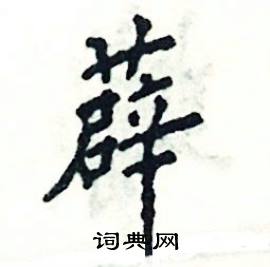 薜
词典网